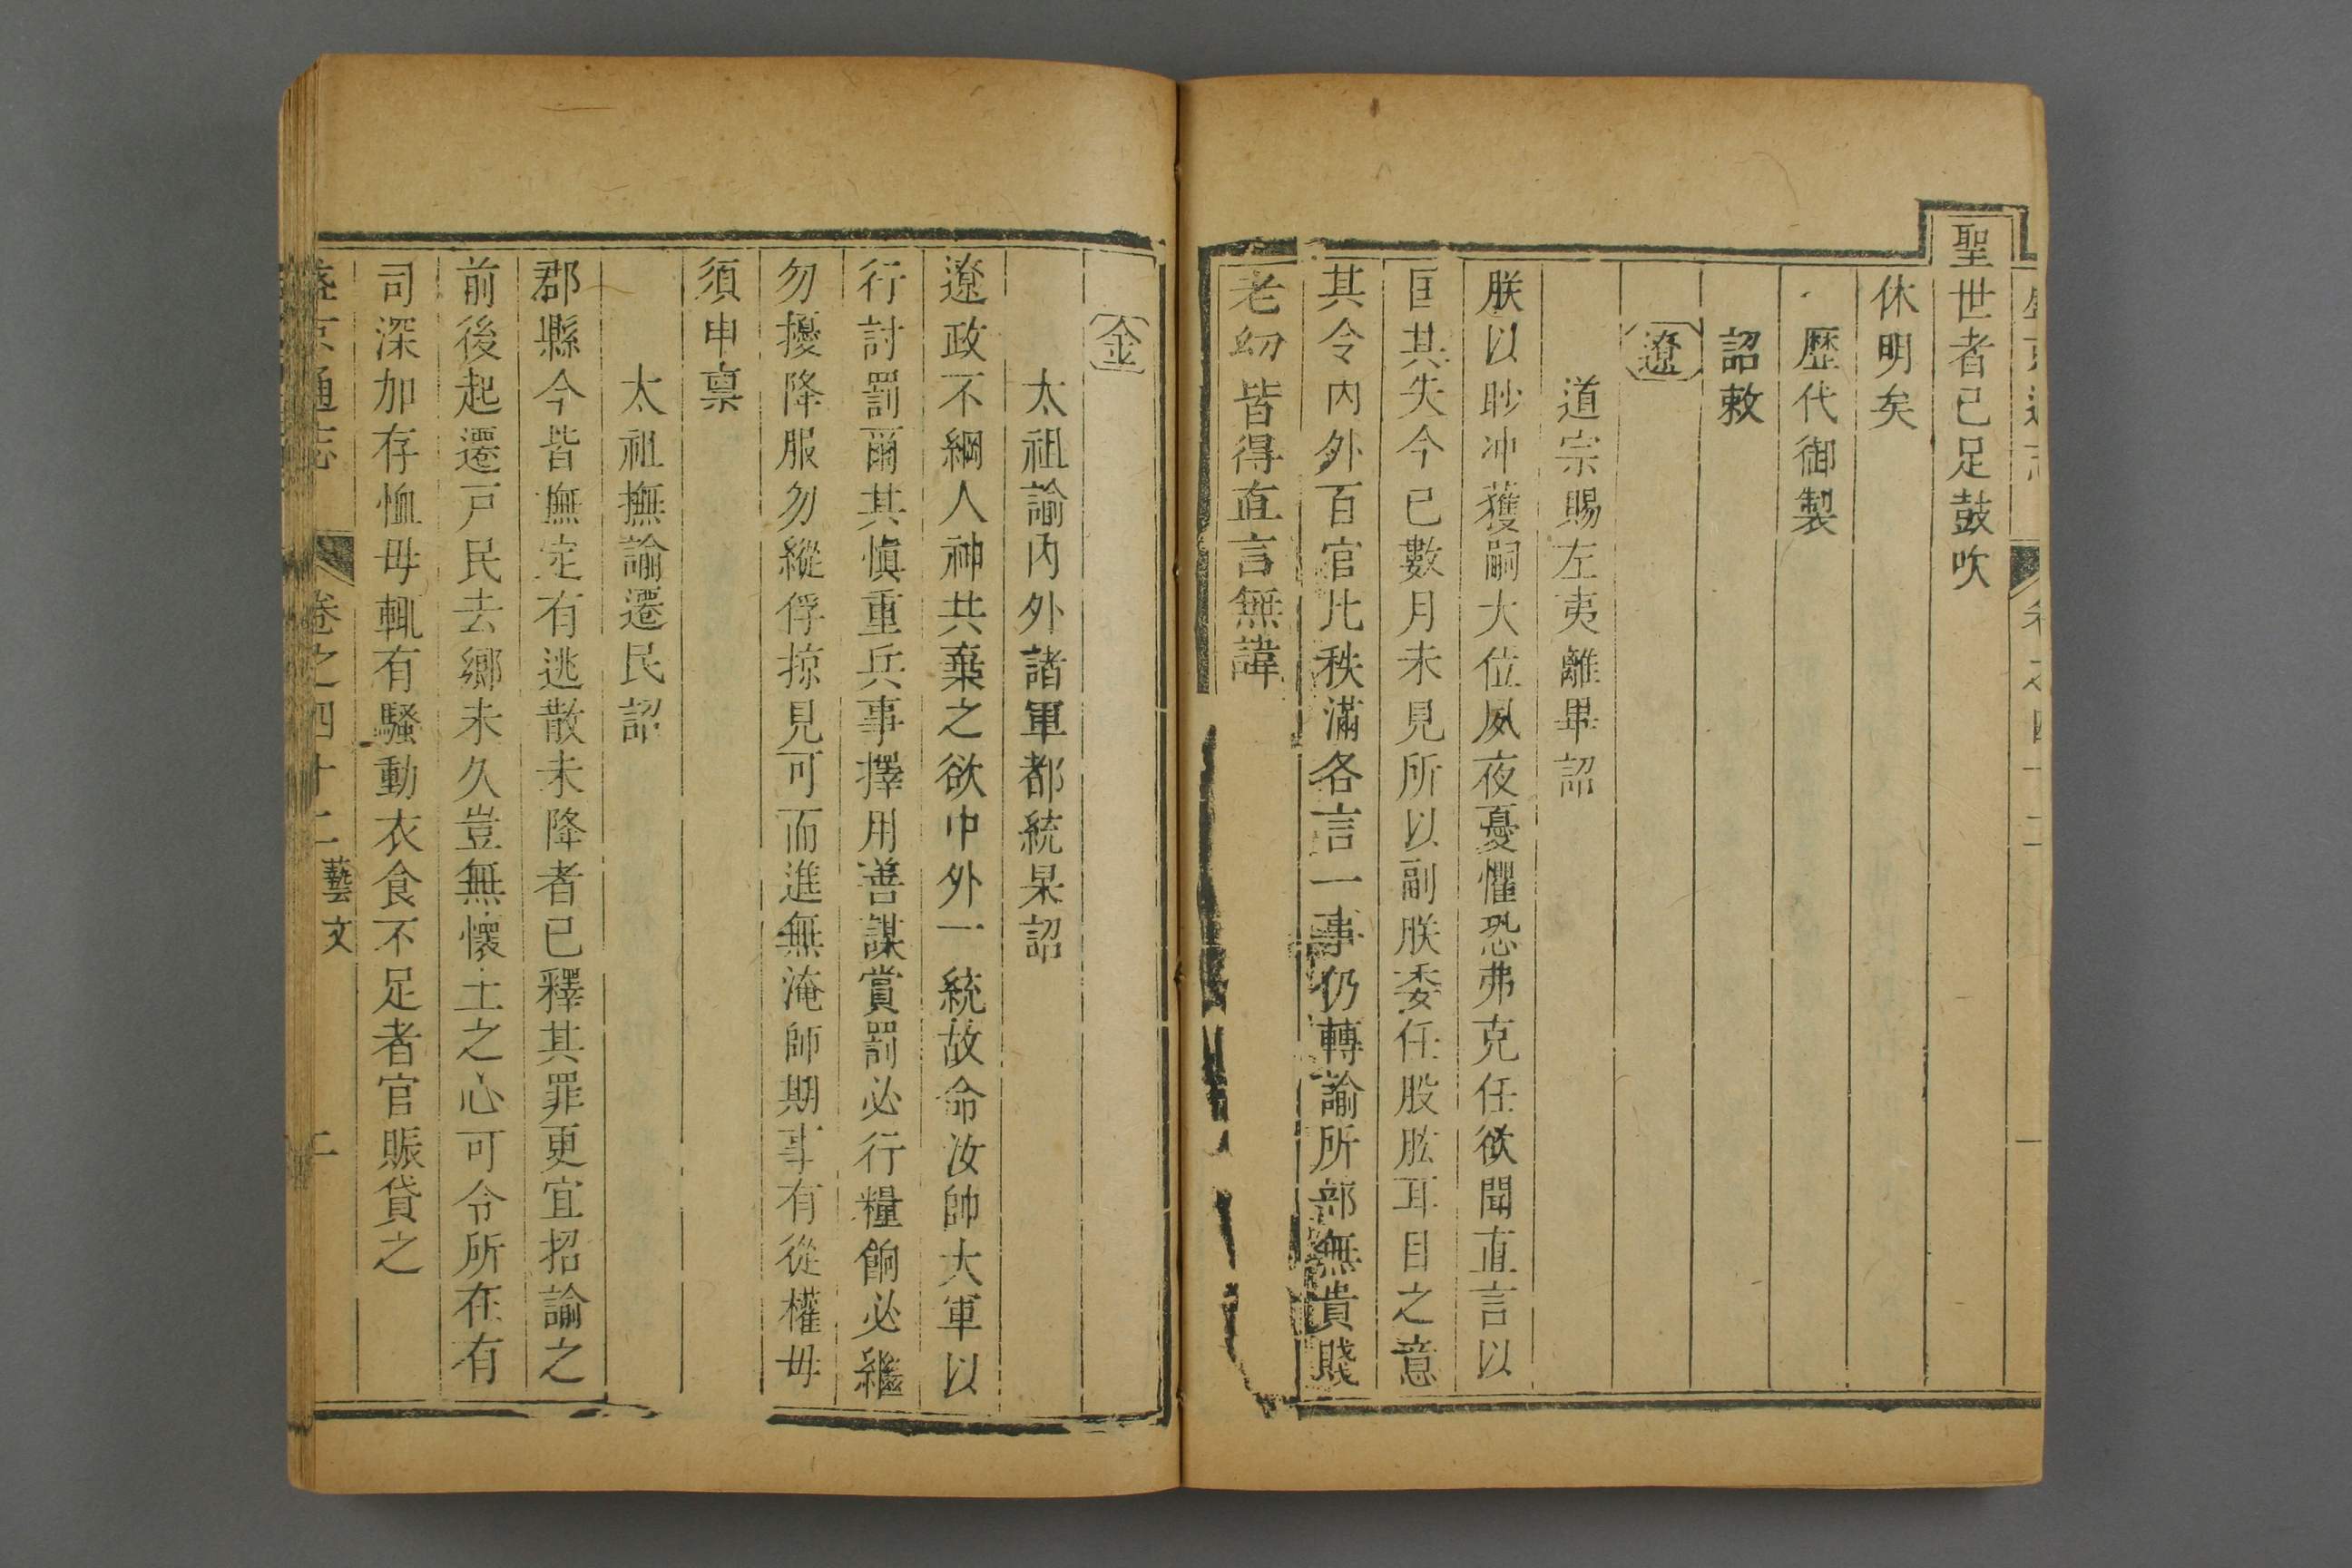 聖世者已足鼓吹
休明矣
歷代御製
詔敕
遼
道宗賜左夷離畢詔
朕以眇冲獲嗣大位夙夜憂懼恐弗克任欲聞直言以
匡其失今已數月未見所以副朕委任股肱耳目之意
其令內外百官比秩滿各言一事仍轉諭所部無貴賤
老幼皆得直言無諱
金
太祖諭內外諸軍都統杲詔
遼政不綱人神共棄之欲中外一統故命汝帥大軍以
行討罰爾其慎重兵事擇用善謀賞罰必行糧餉必繼
勿擾降服勿縱俘掠見可而進無淹師期事有從權毋
須申稟
太祖撫諭遷民詔
郡縣今皆撫定有逃散未降者已釋其罪更宜招諭之
前後起遷戸民去鄉未久豈無懷土之心可令所在有
司深加存恤毋輒有騷動衣食不足者官賑貸之
盛京通志 卷之四十二 藝文 二